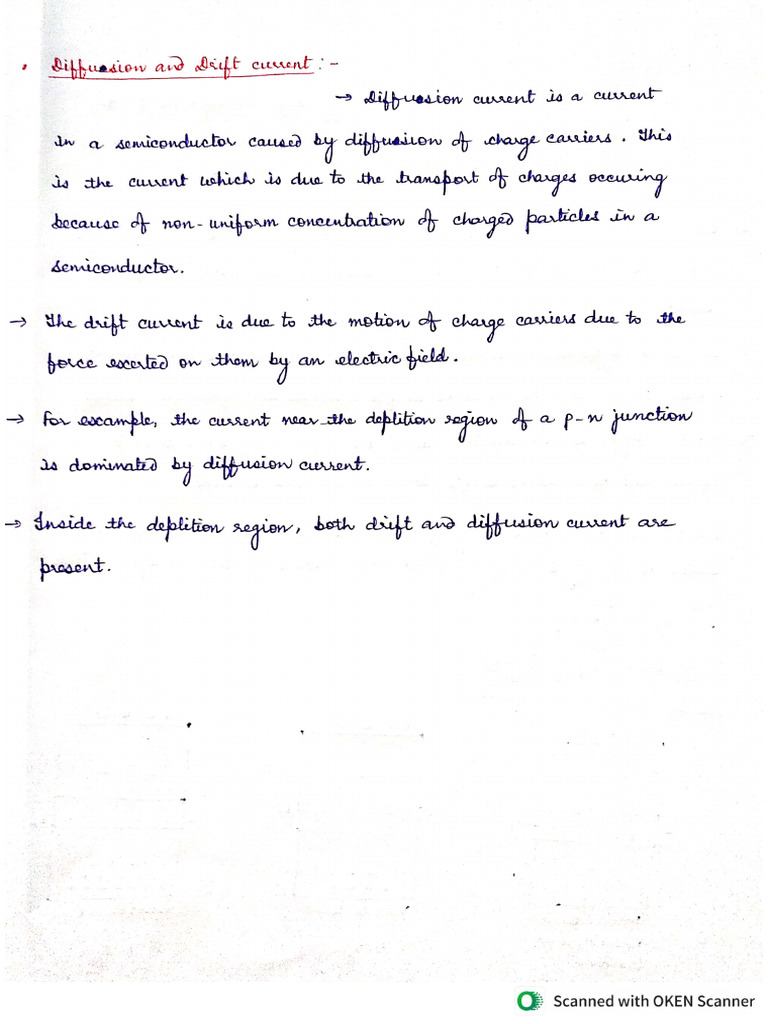 • Diffusion and Drift current :-
→ Diffusion current is a current
In a semiconductor caused by diffusion of charge carriers. This
is the current which is due to the transport of charges occuring
because of non-uniform concentration of charged particles in a
semiconductor.
→ The drift current is due to the motion of charge carriers due to the
force exerted on them by an electric field.
→ For example, the current near the deplition region of a p-n junction
is dominated by diffusion current.
→ Inside the deplition region, both drift and diffusion current are
present.
Scanned with OKEN Scanner